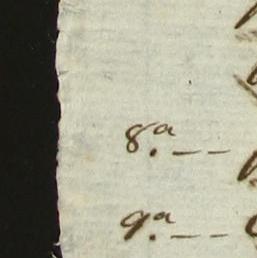 8.ª --
9.ª --